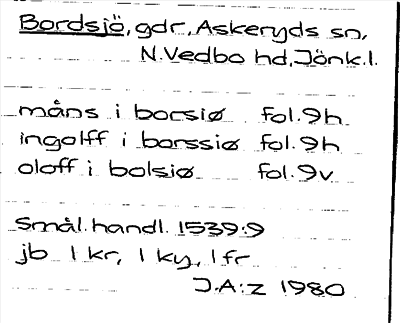 Bordsjö, gdr, Askeryds sn,
N.Vedbo hd, Jönk.l.
måns i borsiø fol.9h
ingolff i borssiø fol.9h
oloff i bolsiø fol.9v
Smål.handl. 1539:9
jb 1 kr, 1 ky, 1 fr
J.A:z 1980